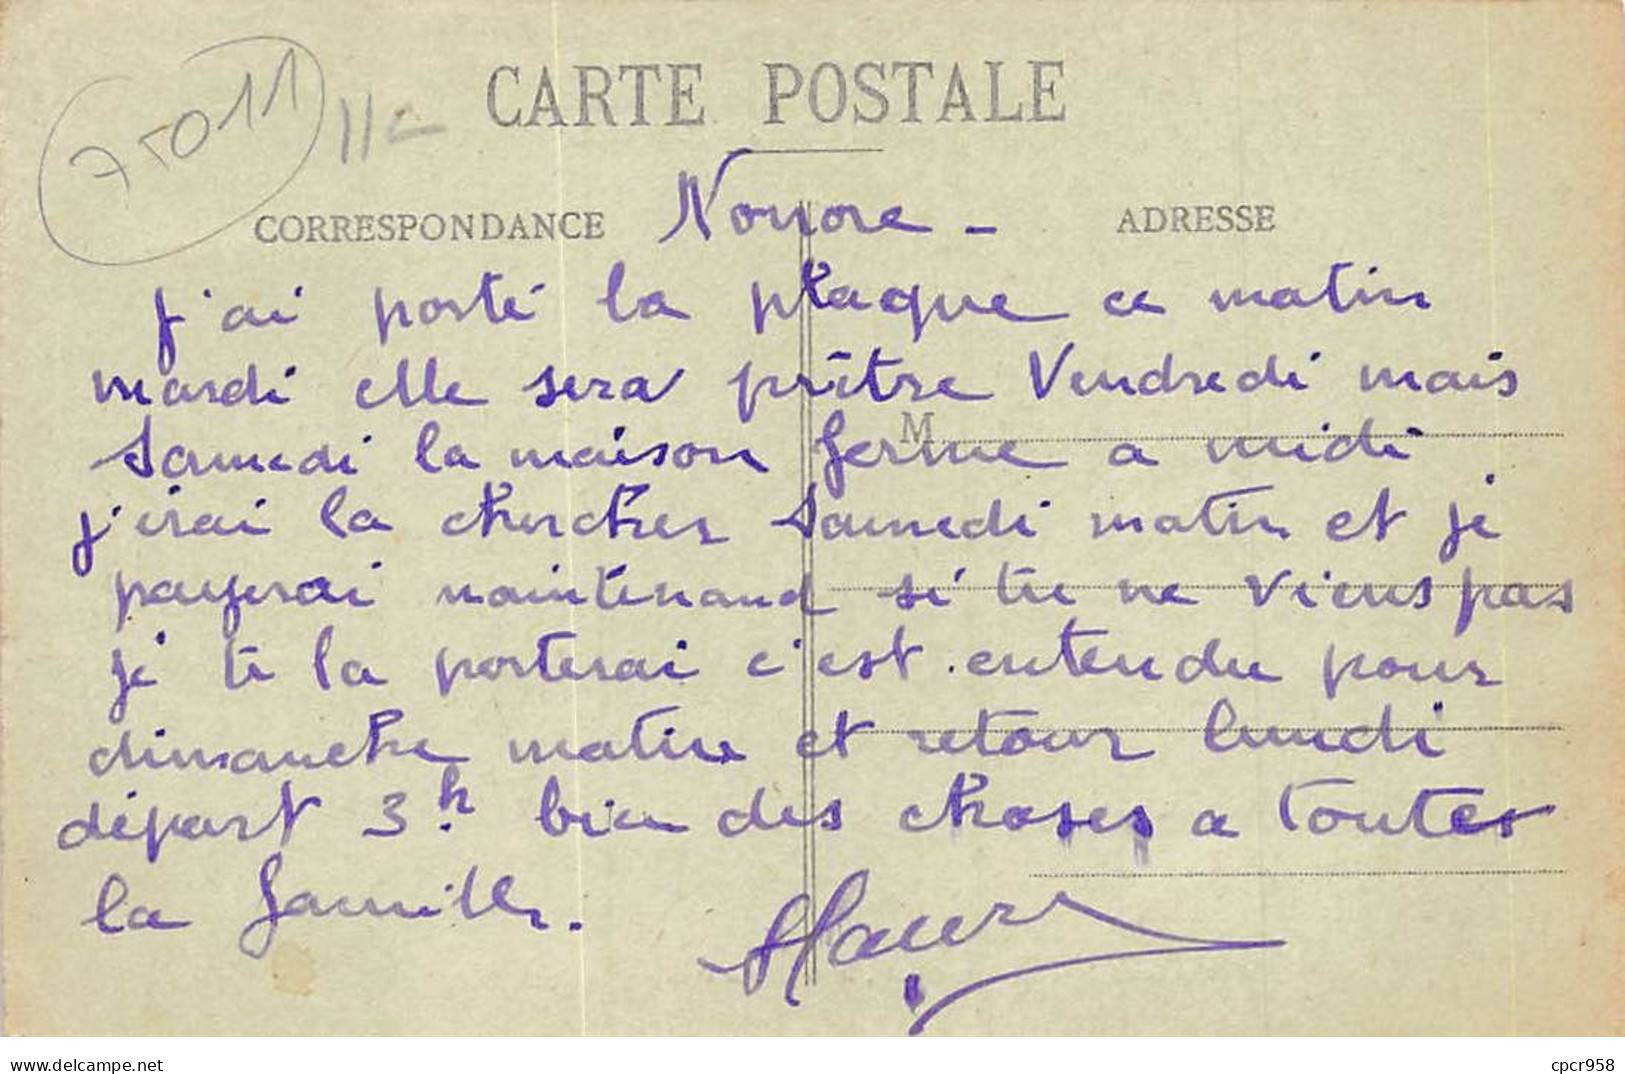 75011
11-
CARTE POSTALE
CORRESPONDANCE
ADRESSE
M
j'ai porté la plaque ce matin
mardi elle sera prètre Vendredi mais
Samedi la maison ferme a midi
j'irai la chercher Samedi matin et je
payerai maintenand si tu ne viens pas
je te la porterai c'est entendu pour
dimanche matin et retour lundi
départ 3h. bien des choses a toutes
la famille.
www.delcampe.net
cpcr958